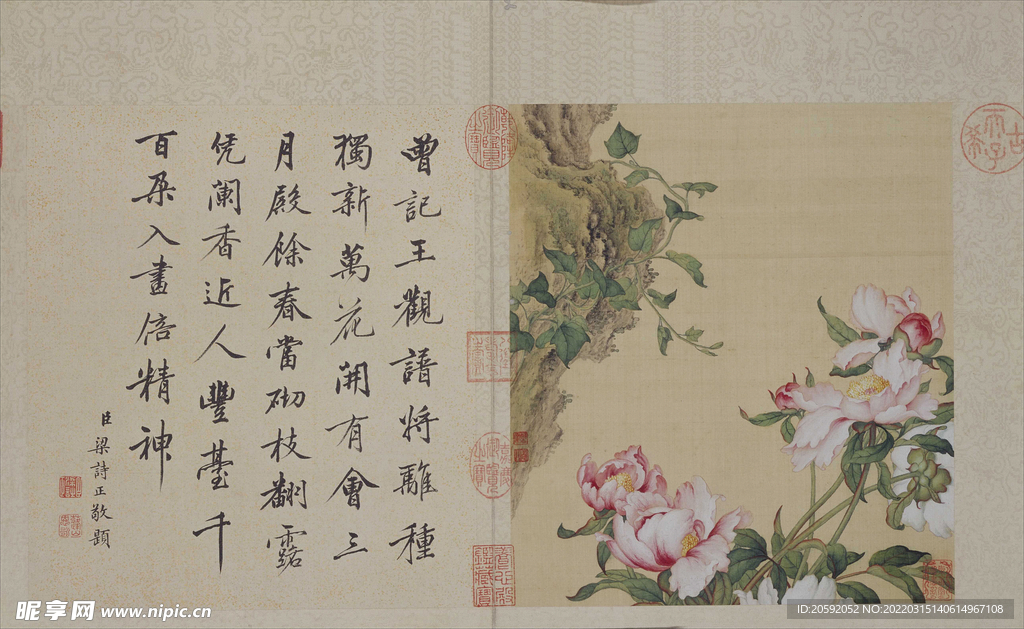 曾記王觀譜將離種
獨新萬花開有會三
月殿餘春當砌枝翻露
凭闌香近人豐臺千
百朶入畫倍精神
臣梁詩正敬題
昵享网 www.nipic.cn
ID:20592052 NO:20220315140614967108